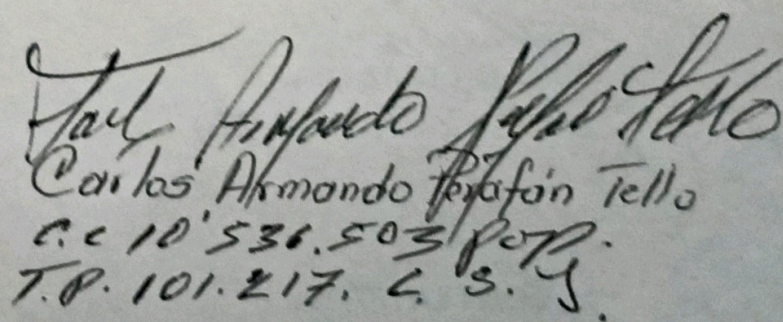 Armando Tello
Carlos Armando Perafán Tello
C.C 10'536.503 Pop.
T.P. 101.217. C. S. J.